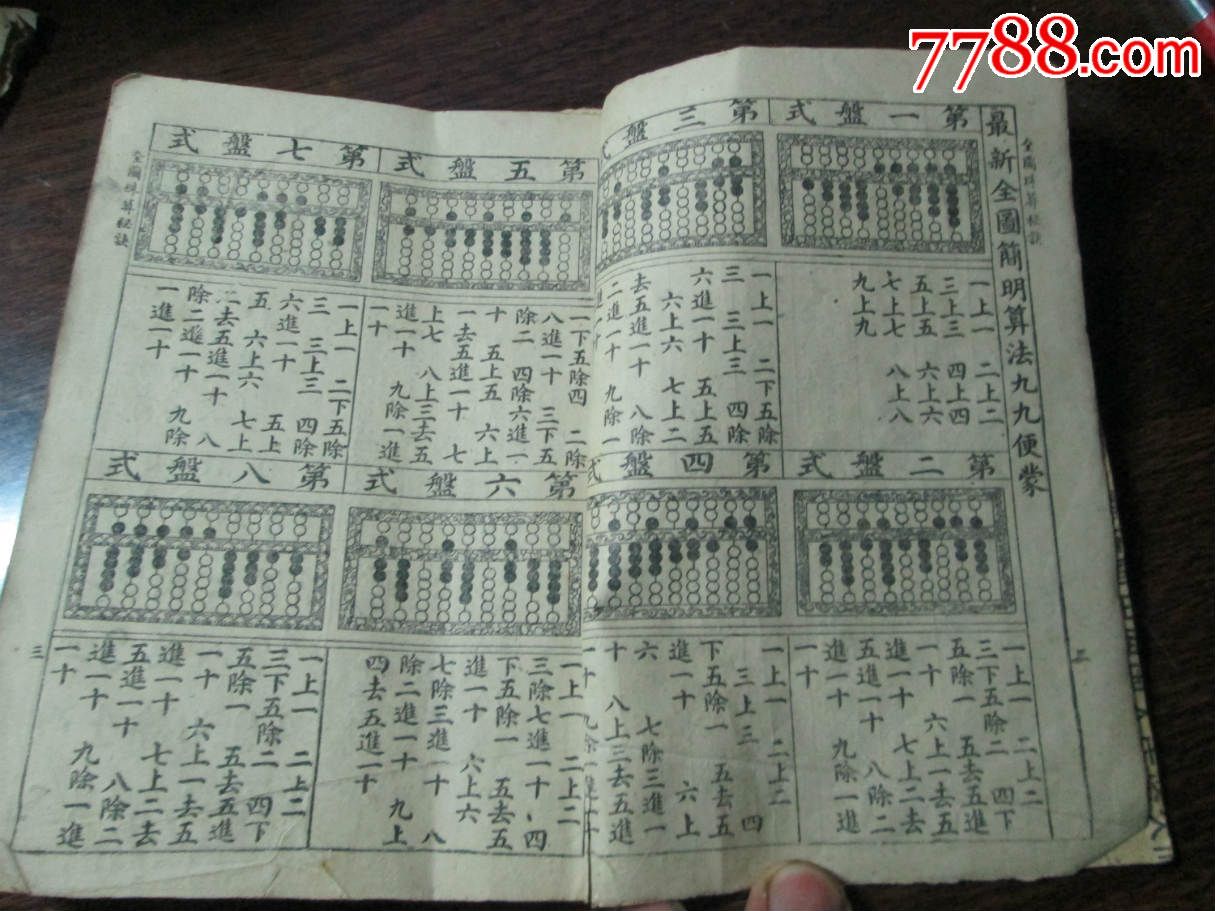 7788.com
全圖珠算秘訣
最新全圖簡明算法九九便蒙
第一盤式
一上一 二上二
三上三 四上四
五上五 六上六
七上七 八上八
九上九
第二盤式
一上一 二上二
三下五除二 四下
五除一 五去五進
一十 六上一去五
進一十 七上二去
五進一十 八除二
進一十 九除一進
一十
第三盤
一上一 二下五除
三 三上三 四除
六進一十 五上五
六上六 七上二
去五進一十 八除
二進一十 九除一
第四盤式
一上一 二上二
三上三 四
下五除一 五去五
進一十 六上
六 七除三進一
十 八上三去五進
一十 九除一進一十
第五盤式
一下五除四 二除
八進一十 三下五
除二 四除六進一
十 五上五 六上
一去五進一十 七
上七 八上三去五
進一十 九除一進
一十
第六盤式
一上一 二上二
三除七進一十 四
下五除一 五去五
進一十 六上六
七除三進一十 八
除二進一十 九上
四去五進一十
第七盤式
一上一 二下五除
三 三上三 四除
六進一十 五上
五 六上六 七上
二去五進一十 八
除二進一十 九除
一進一十
第八盤式
一上一 二上二
三下五除二 四下
五除一 五去五進
一十 六上一去五
進一十 七上二去
五進一十 八除二
進一十 九除一進
一十
全圖珠算秘訣
三